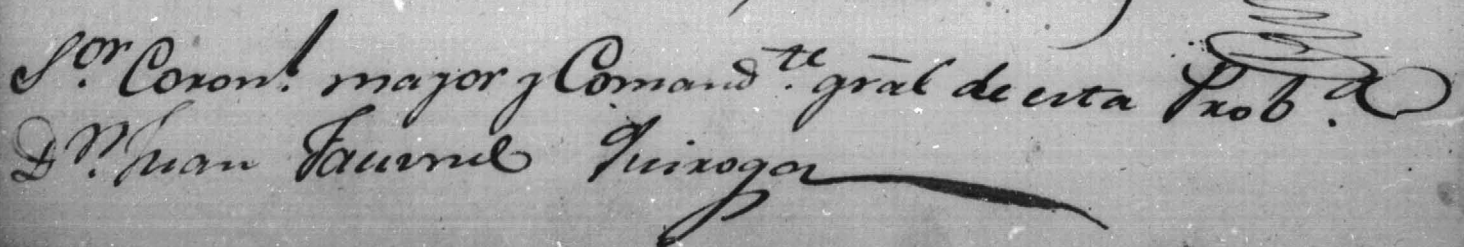 S.or Coron.l major y Comand.te gral de esta Prob.a
D.n Juan Facund Quiroga